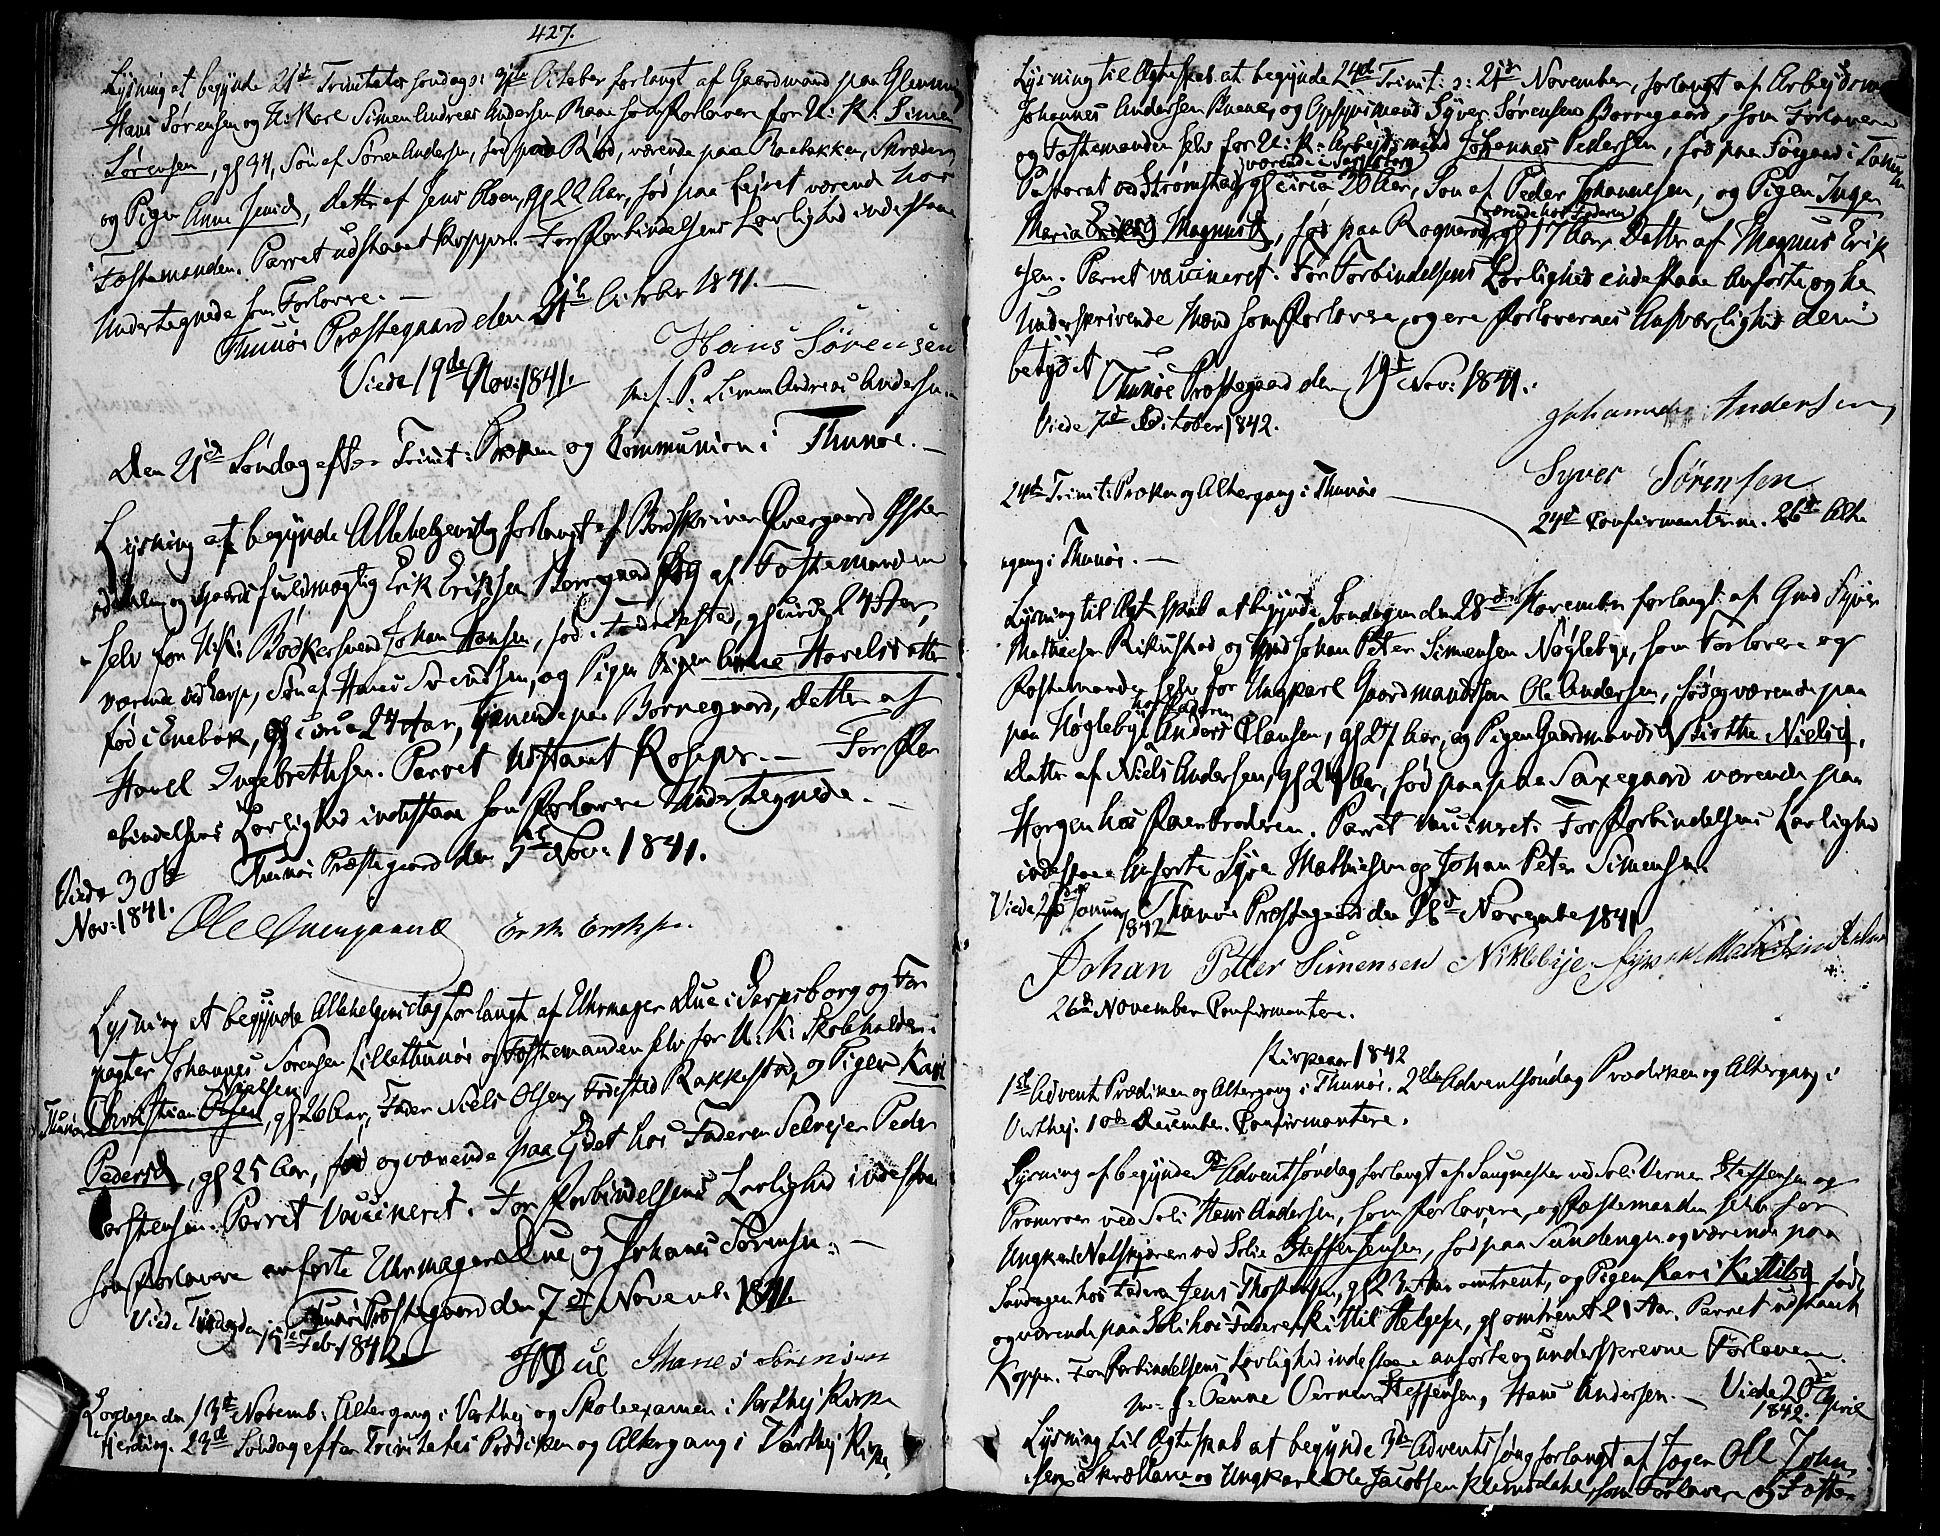 427.
Lysning at begynde 21de Trinitatis søndag October forlangt af Gaardmand paa Glemmig
Hans Sørensen og U: Karl Simen Andreas Andersen som Forlovere for U: K: Simen
Sørensen, gl 34, Søn af Søren Andersen, født paa Rød, værende paa Skræder,
og Pigen Anne Jensd, datter af Jens Olsen, gl 22 Aar, fød paa Lejret værend hos
Fæstemanden. Parret udstaaet Kopper. For Forbindelsens Lovlighed indestaae
Undertegnede som Forlovere. —
Thunøe Præstegaard den October 1841. —
Hans Sørensen
Viede 19de Nov: 1841.
m. f. P. Simen Andreas Andersen
Den 21de Søndag efter Trinit: Præken og Communion i Thunøe. —
Lysning at begynde Allehelgensdag forlangt af Bordskriver Overgaard
og fuldmægtig Erik Eriksen Borregaard og af Fæstemanden
selv for U: K: Bødkersvend Johan Hansen, fød i gl circa 24 Aar,
værende ved Sarp, Søn af Hans Svendsen, og Pigen Pigen Anne Havelsdatter
fød i Enebak, gl circa 24 Aar, tjenende paa Borregaard, datter af
Havel Ingebrethsen. Parret udstaaet Kopper. — For For
bindelsens Lovlighed indestaae som Forlovere Undertegnede. —
Thunøe Præstegaard den 5te Nov: 1841.
Viede 30te
Nov: 1841.
Ole Overgaard Erik Eriksen
Lysning at begynde Allehelgensdag forlangt af Uhrmager Due i Sarpsborg og For
pagter Johannes Sørensen Lillethunøe og Fæstemanden selv for U: K: Skoleholder i
Nielsen
Thunøe Christian Olsen, gl 26 Aar, Fader Niels Olsen, Fødested Rakkestad, og Pigen Kari
Pedersd, gl 25 Aar, fød og værende paa Ejdet hos Faderen Selvejer Peder
Torstensen. Parret Vaccineret. For Forbindelsens Lovlighed indestaae
som Forlovere anførte Uhrmager Due og Johanes Sørensen. —
Thunøe Præstegaard den 7de Novemb. 1841.
Viede Tirsdag den 15de Feb. 1842.
Due Johanes Sørensen
Løverdagen den 13de Novemb: Altergang i Varthej og Skoleexamen i Varthej Kirke
23de Søndag efter Trinitatis Prædiken og Altergang i Varthej Kirke.
Lysning til Ægteskab at begynde 24de Trinit: o: 21de November, forlangt af Arbejdsmand
Johannes Andersen og Opsynsmand Syver Sørensen Borregaard, som Forlovere
og Fæstemanden selv for U: K: Arbejdsmand Johannes Pedersen, fød paa Søegaard i Tanum
værende i Sarpsborg
Pastorat ved Strømstad, gl circa 26 Aar, Søn af Peder Johannesen, og Pigen Inger
værende hos Faderen
Maria Eriksd Magnusd, fød paa Rognerød, gl 17 Aar, Datter af Magnus Erik
sen. Parret vaccineret. For Forbindelsens Lovlighed indestaae Anførte og her
Underskrivende Mænd som Forlovere, og ere Forlovernes Ansvarlighed dem
betydet
Thunøe Præstegaard den 19de Nov: 1841.
Viede 7de October 1842.
Johannes Andersen
Syver Sørensen
24de Trinit: Præken og Altergang i Thunøe —
24de Confirmanterne. 26de Alter
gang i Thunøe. —
Lysning til Ægteskab at begynde Søndagen den 28de November forlangt af Gmd Syver
Mathiesen og Gmd Johan Peter Simensen Nøgleby, som Forlovere og
Fæstemanden selv for Ungkarl Gaardmandssøn Ole Andersen, fød og værende paa
hos Faderen
paa Nøgleby Anders Clausen, gl 27 Aar, og Pigen Gaardmandsd Birthe Nielsd,
Datter af Niels Andersen, gl 24 Aar, fød paa paa Saxegaard værende paa
Horgen hos Broderen. Parret vaccineret. For Forbindelsens Lovlighed
indestaae Anførte Syver Mathiesen og Johan Peter Simensen.
Viede Januar
1842
Thunøe Præstegaard den November 1841
Johan Petter Simensen Niklebye
26de November Confirmantere.
Kirkeaar 1842
1ste Advent Prædiken og Altergang i Thunøe. 2den Adventsøndag Prædiken og Altergang i
Varthej. 10de December. Confirmantere.
Lysning at begynde Adventsøndag forlangt af Saugmester ved Soli Verner Steffensen og
ved Soli Hans Andersen, som Forlovere, og Fæstemanden selv for
Ungkarl ved Solie Steffen Jensen, fød paa Sandengen og værende paa
Sandengen hos Faderen Jens gl 23 Aar omtrent, og Pigen Kari Kittilsd fød
og værende paa Soli hos Faderen Kittil Helgesen, gl omtrent 21 Aar. Parret udstaaet
Kopper. For Forbindelsens Lovlighed indestaae anførte og underskrevne Forlovere.
m. f. Penne Verner Steffensen, Hans Andersen. — Viede 20de April
1842.
Lysning til Ægteskab at begynde 3de Adventssøndag forlangt af Jægen Ole John
sen og Ungkarl Ole Jacobsen som Forlovere og Fæste